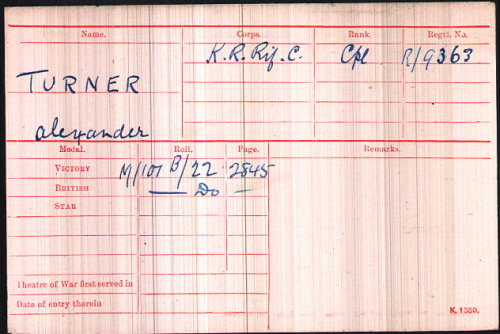 Name. Corps. Rank. Regtl. No.
TURNER K.R.Rif.C. Cpl R/9363
Alexander
Medal. Roll. Page. Remarks.
VICTORY M/101 B/22 2845
BRITISH — Do —
STAR
Theatre of War first served in
Date of entry therein
K. 1380.